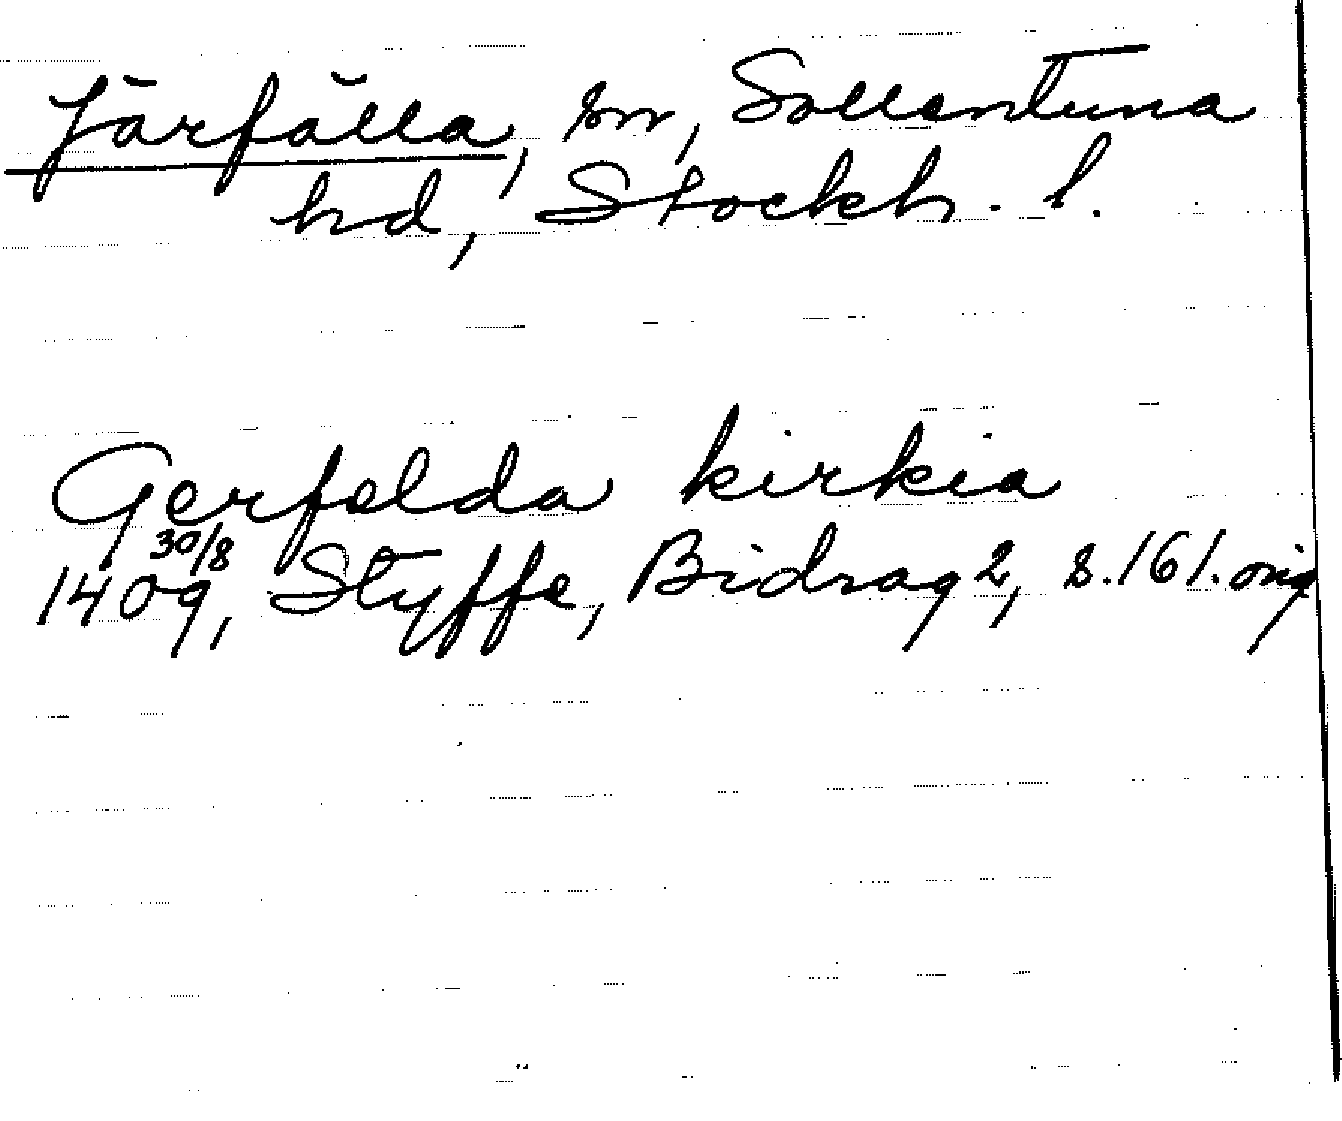 Järfälla, sn, Sollentuna
hd, Stockh. l.
Gerfelda kirkia
1409 30/8, Styffe, Bidrag 2, s. 161. orig